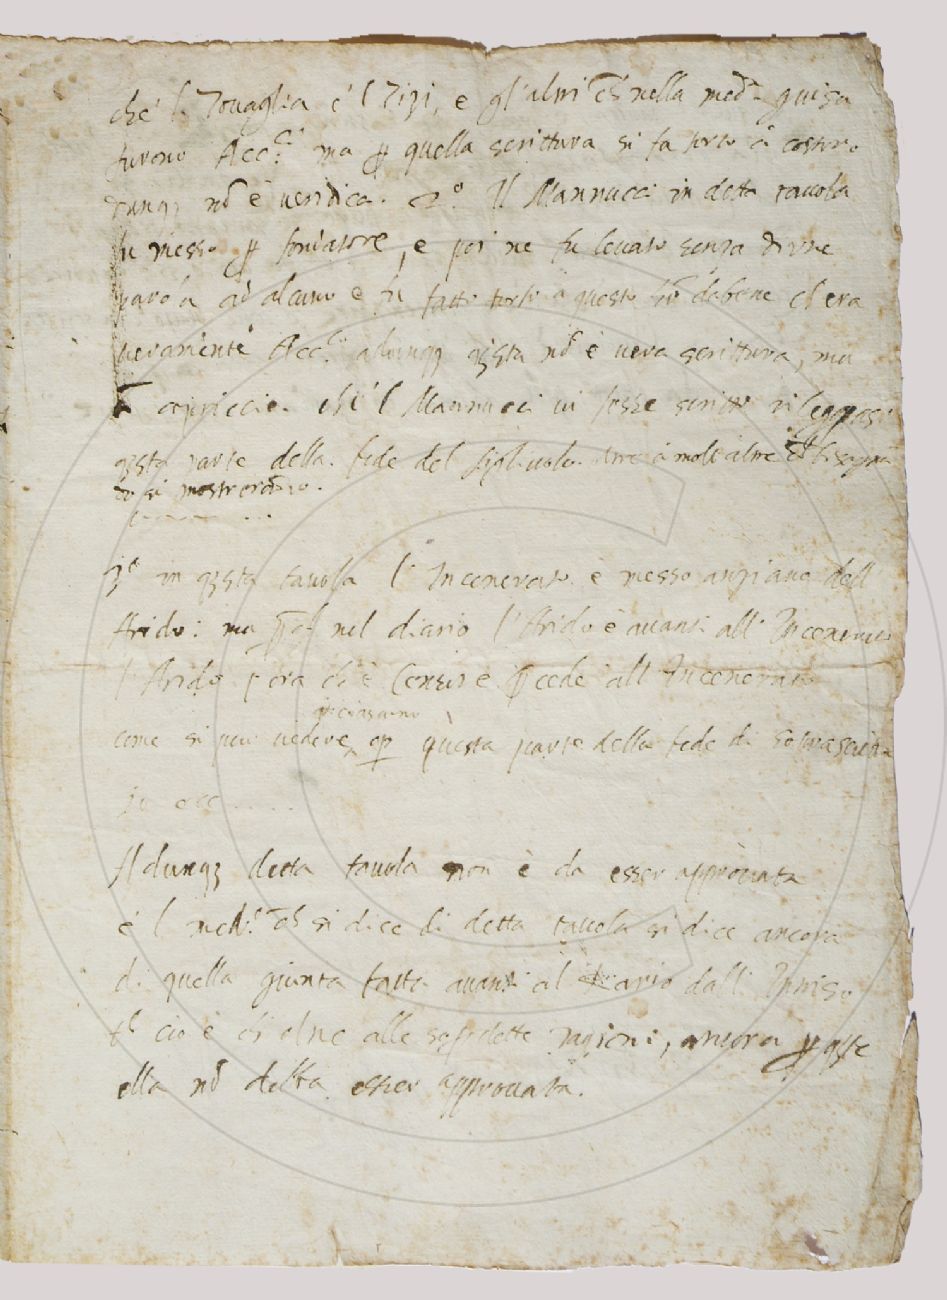 che l Tovaglia e l Zizi, e gl'altri ch nella med.a guisa
furono Acc.ci ma p quella scrittura si fa torto à costoro
dunq; nō è veridica. 2.o Il Mannucci in detta tavola
fu messo p fondatore, e poi ne fu levato senza dirne
parola ad alcuno e fu fatto torto à questo dabene ch'era
veramente Acc.co adunq; qsta nō è vera scrittura, ma
capriccio. chè l Mannucci vi fosse scritto rileggasi
qsta parte della fede del oltre à molte altre ch
si mostreranno.
3.o in qsta tavola l'Incenerato è messo anziano dell
Arido: ma nel diario l'Arido è avanti all'Incenerato
l'Arido ch'è Censore pcede all Incenerato
come si può vedere questa parte della fede di
ecc .....
Adunq; detta tavola non è da esser approvata
é l med.o ch si dice di detta tavola si dice ancora
di quella giunta fatta avanti al diario dall'
ciò è ch oltre alle sopdette ragioni, ancora p qste
ella nō debba esser approvata.